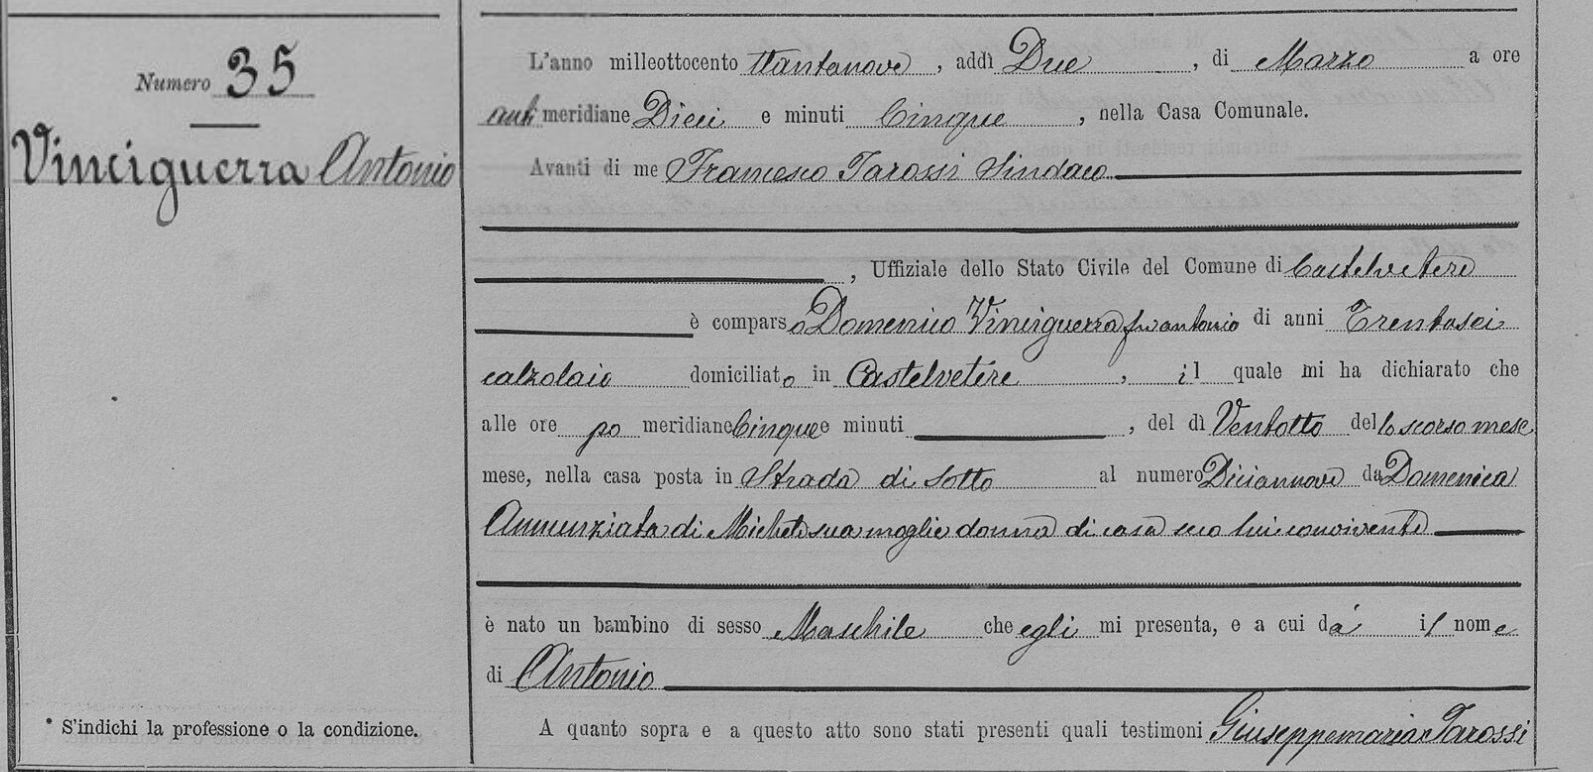 Numero 35
Vinciguerra Antonio
* S'indichi la professione o la condizione.
L'anno milleottocento ttantanove, addì Due, di Marzo a ore
anti meridiane Dieci e minuti Cinque, nella Casa Comunale.
Avanti di me Francesco Tarossi Sindaco
, Uffiziale dello Stato Civile del Comune di Castelvetere
è comparso Domenico Vinciguerra fu antonio di anni Trentasei
calzolaio domiciliato in Castelvetere, il quale mi ha dichiarato che
alle ore po meridiane Cinque e minuti, del dì Ventotto dello scorso mese
mese, nella casa posta in Strada di Sotto al numero Diciannove da Domenica
Annunziata di Michele sua moglie donna di casa seco lui convivente
è nato un bambino di sesso Maschile che egli mi presenta, e a cui dá il nome
di Antonio
A quanto sopra e a questo atto sono stati presenti quali testimoni Giuseppemaria Tarossi